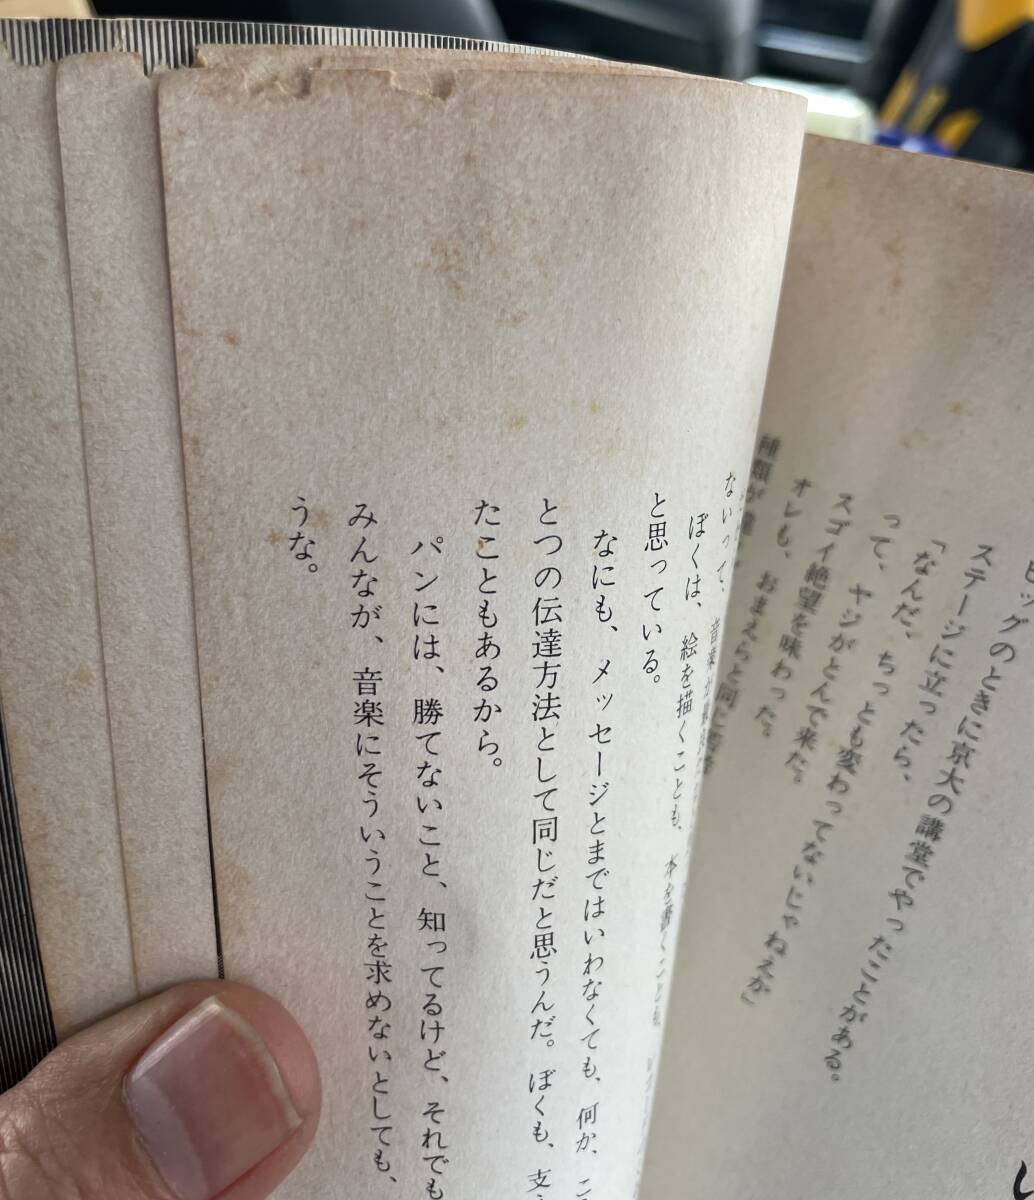 ビッグのときに京大の講堂でやったことがある。
ステージに立ったら、
「なんだ、ちっとも変わってないじゃねえか」
って、ヤジがとんで来た。
スゴイ絶望を味わった。
オレも、おまえらと同じ
種類が
ないって、音楽が
ぼくは、絵を描くことも、本を書くことも、
と思っている。
なにも、メッセージとまではいわなくても、何か、こ
とつの伝達方法として同じだと思うんだ。ぼくも、支
たこともあるから。
パンには、勝てないこと、知ってるけど、それでも
みんなが、音楽にそういうことを求めないとしても、
うな。